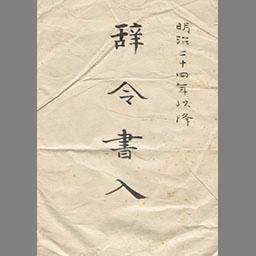 明治二十四年以降
辞令書入